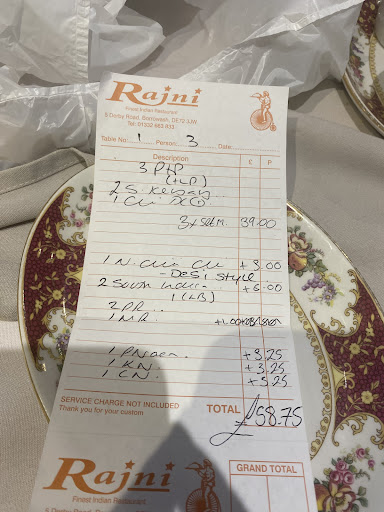 Rajni
Finest Indian Restaurant
5 Derby Road, Borrowash, DE72 3JW
Tel: 01332 663 833
Table No: 1 Person: 3 Date:
Description £ P
3 P+P
(+LP)
2 S. Kebab
1
3 x Set M. 39.00
1 N. + 3.00
- Desi Style
2 South + 6.00
2 PR
1 MR
+ 3.25
1 KN + 3.25
1 CN + 3.25
SERVICE CHARGE NOT INCLUDED
Thank you for your custom
TOTAL £58.75
Rajni
Finest Indian Restaurant
GRAND TOTAL